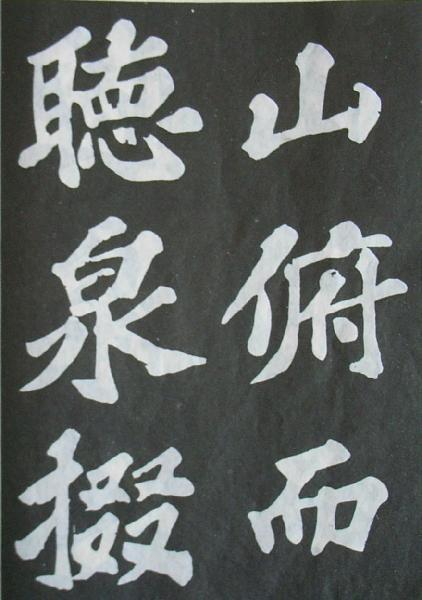 山俯而
聴泉掇